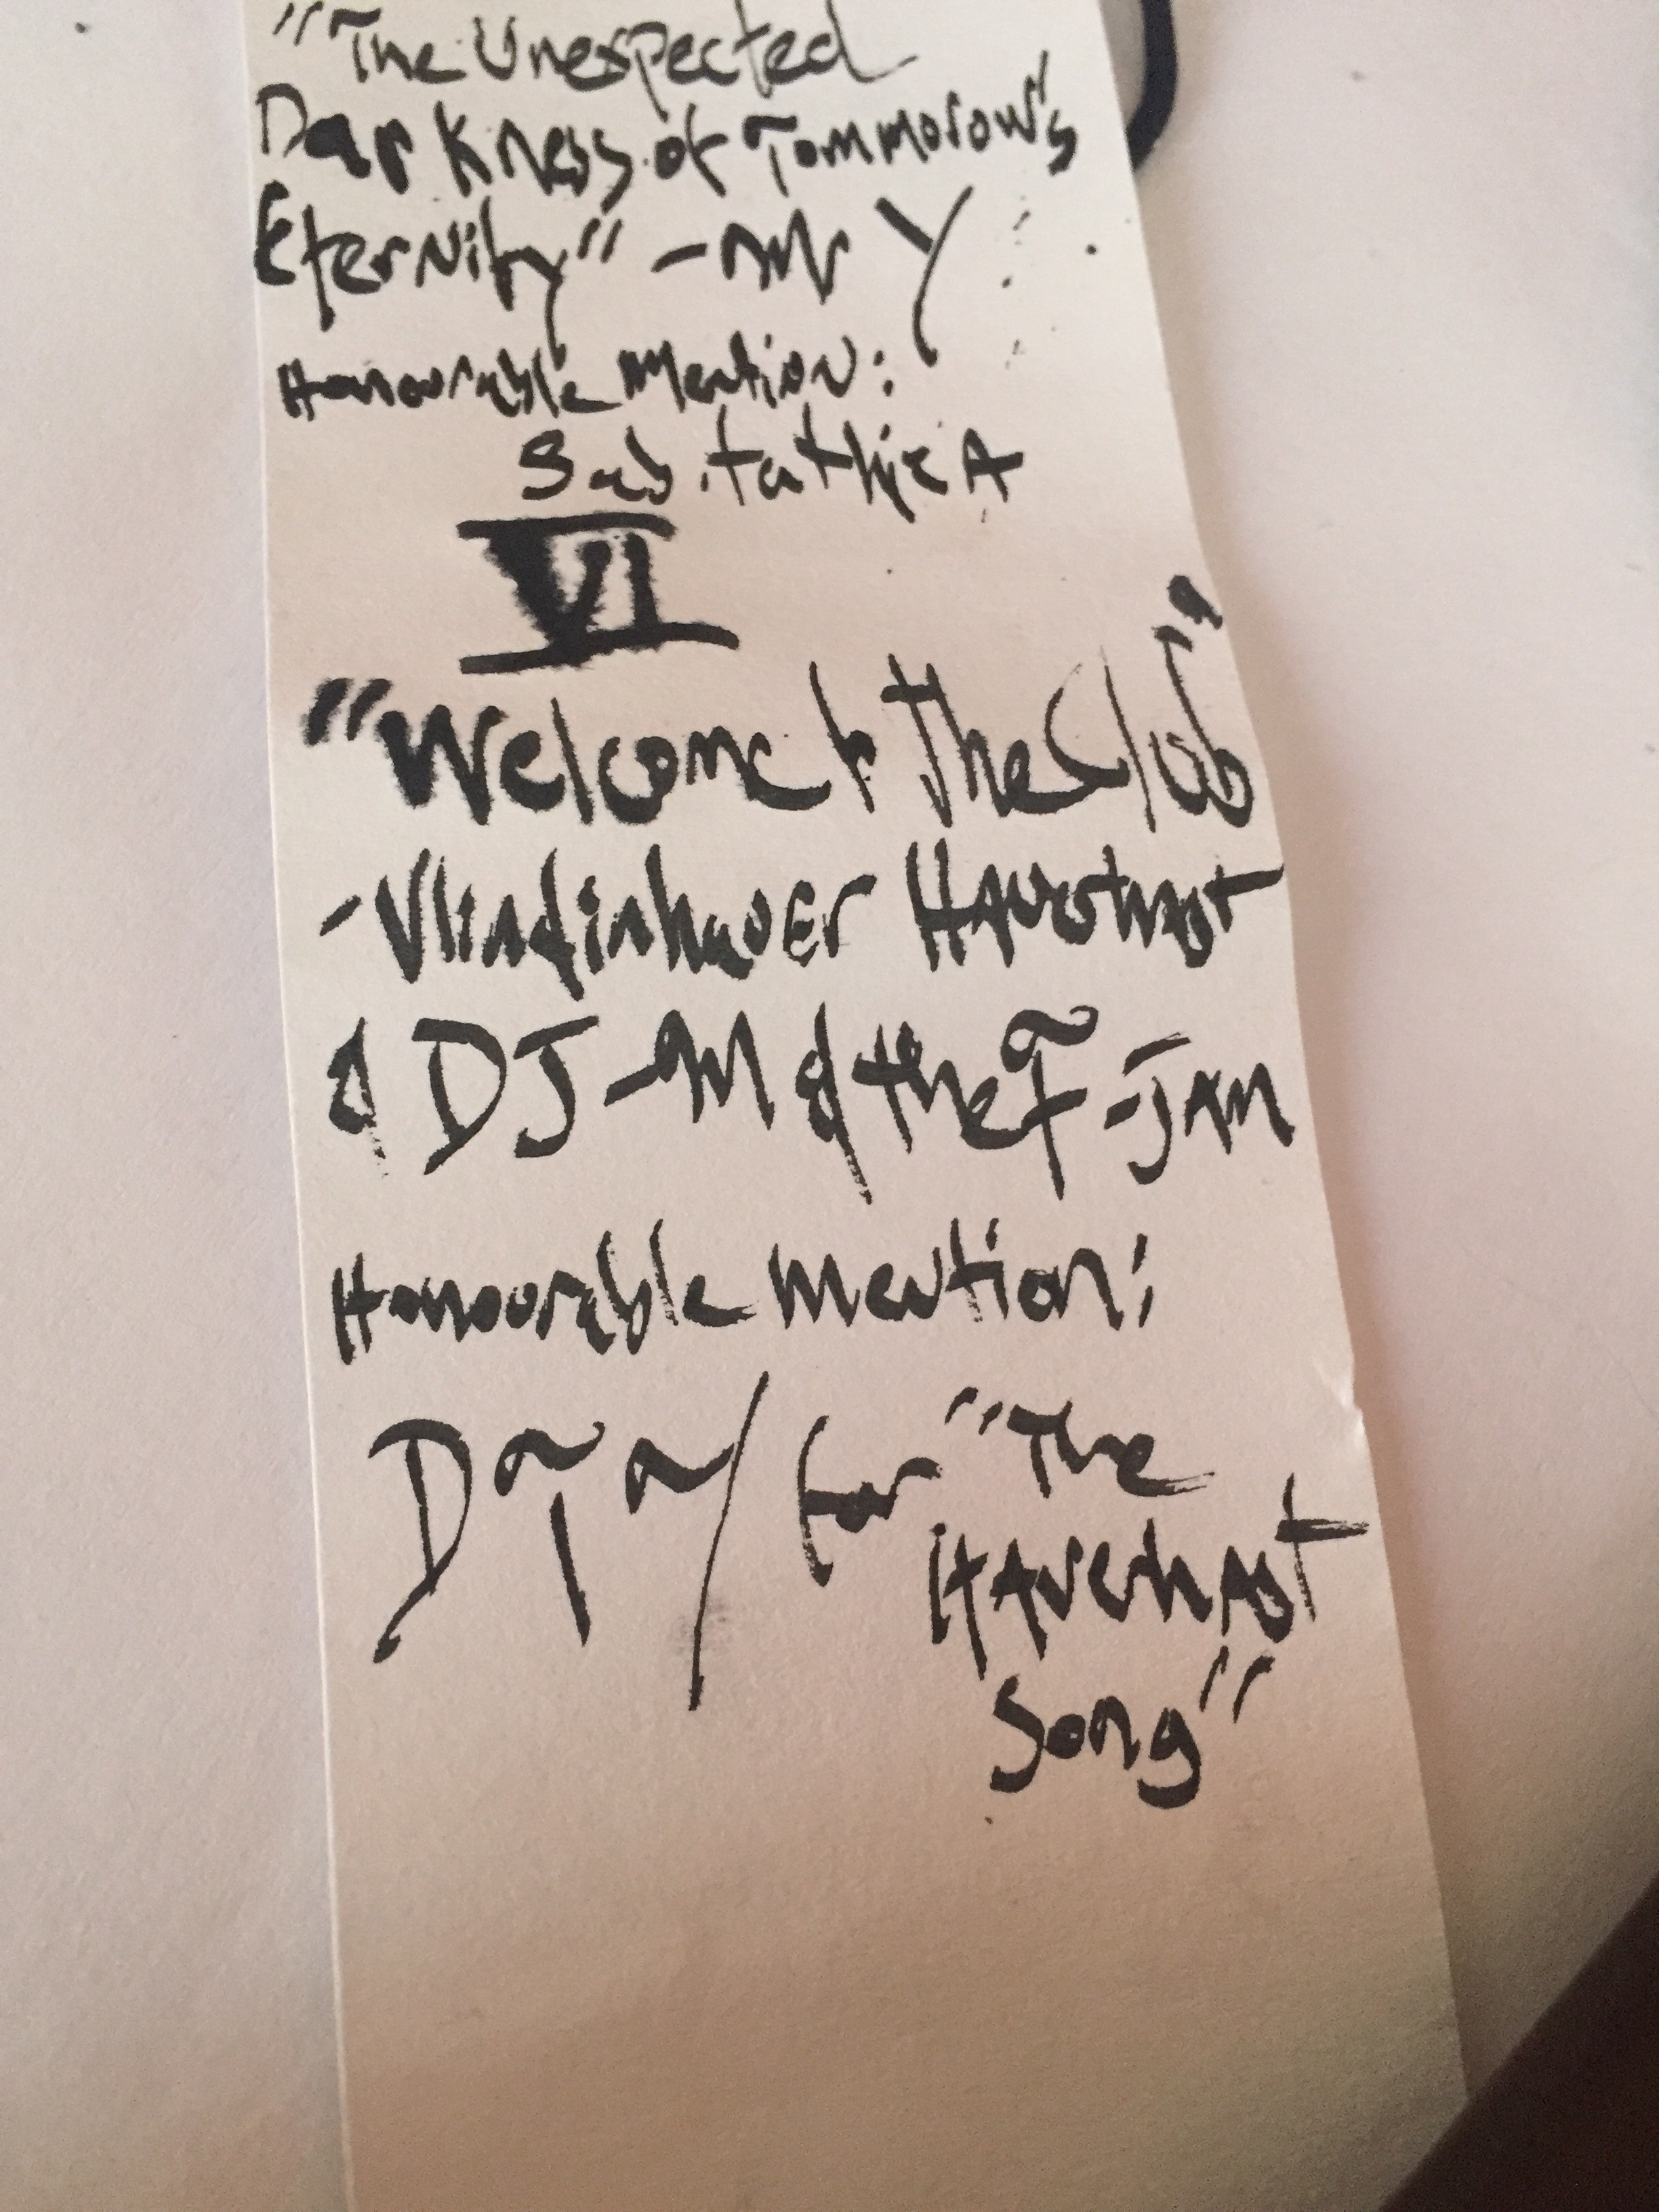 "The Unexpected
Darkness of Tommorow's
Eternity" - Mr Y
Honourable Mention:
VI
"Welcome to the Club"
- Vlindinhauer Haverhast
& DJ-M & the F-Jam
Honourable Mention:
for "The
Haverhast
Song"